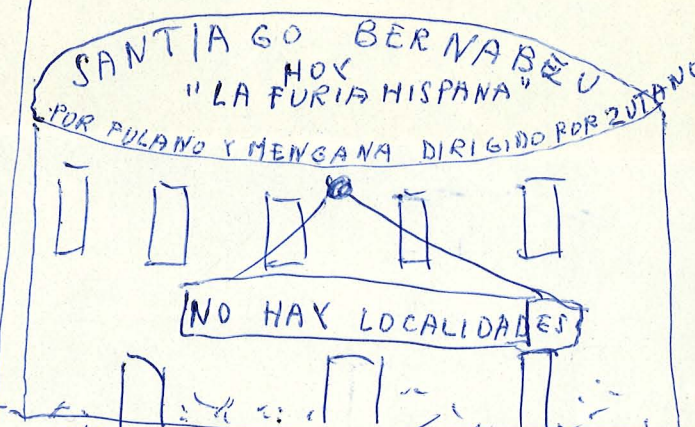 SANTIAGO BERNABEU
HOY
"LA FURIA HISPANA"
POR FULANO Y MENGANA DIRIGIDO POR ZUTANO
NO HAY LOCALIDADES